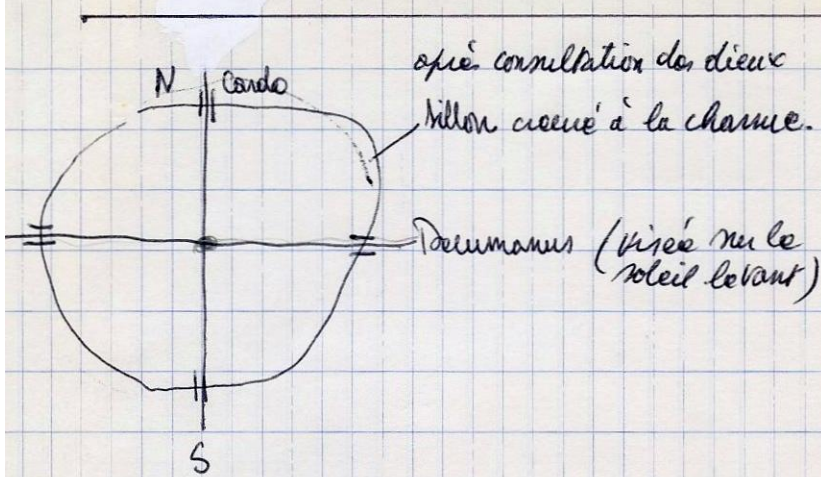 après consultation des dieux
N Cardo
sillon creusé à la charrue.
Decumanus (visée sur le
soleil levant)
S